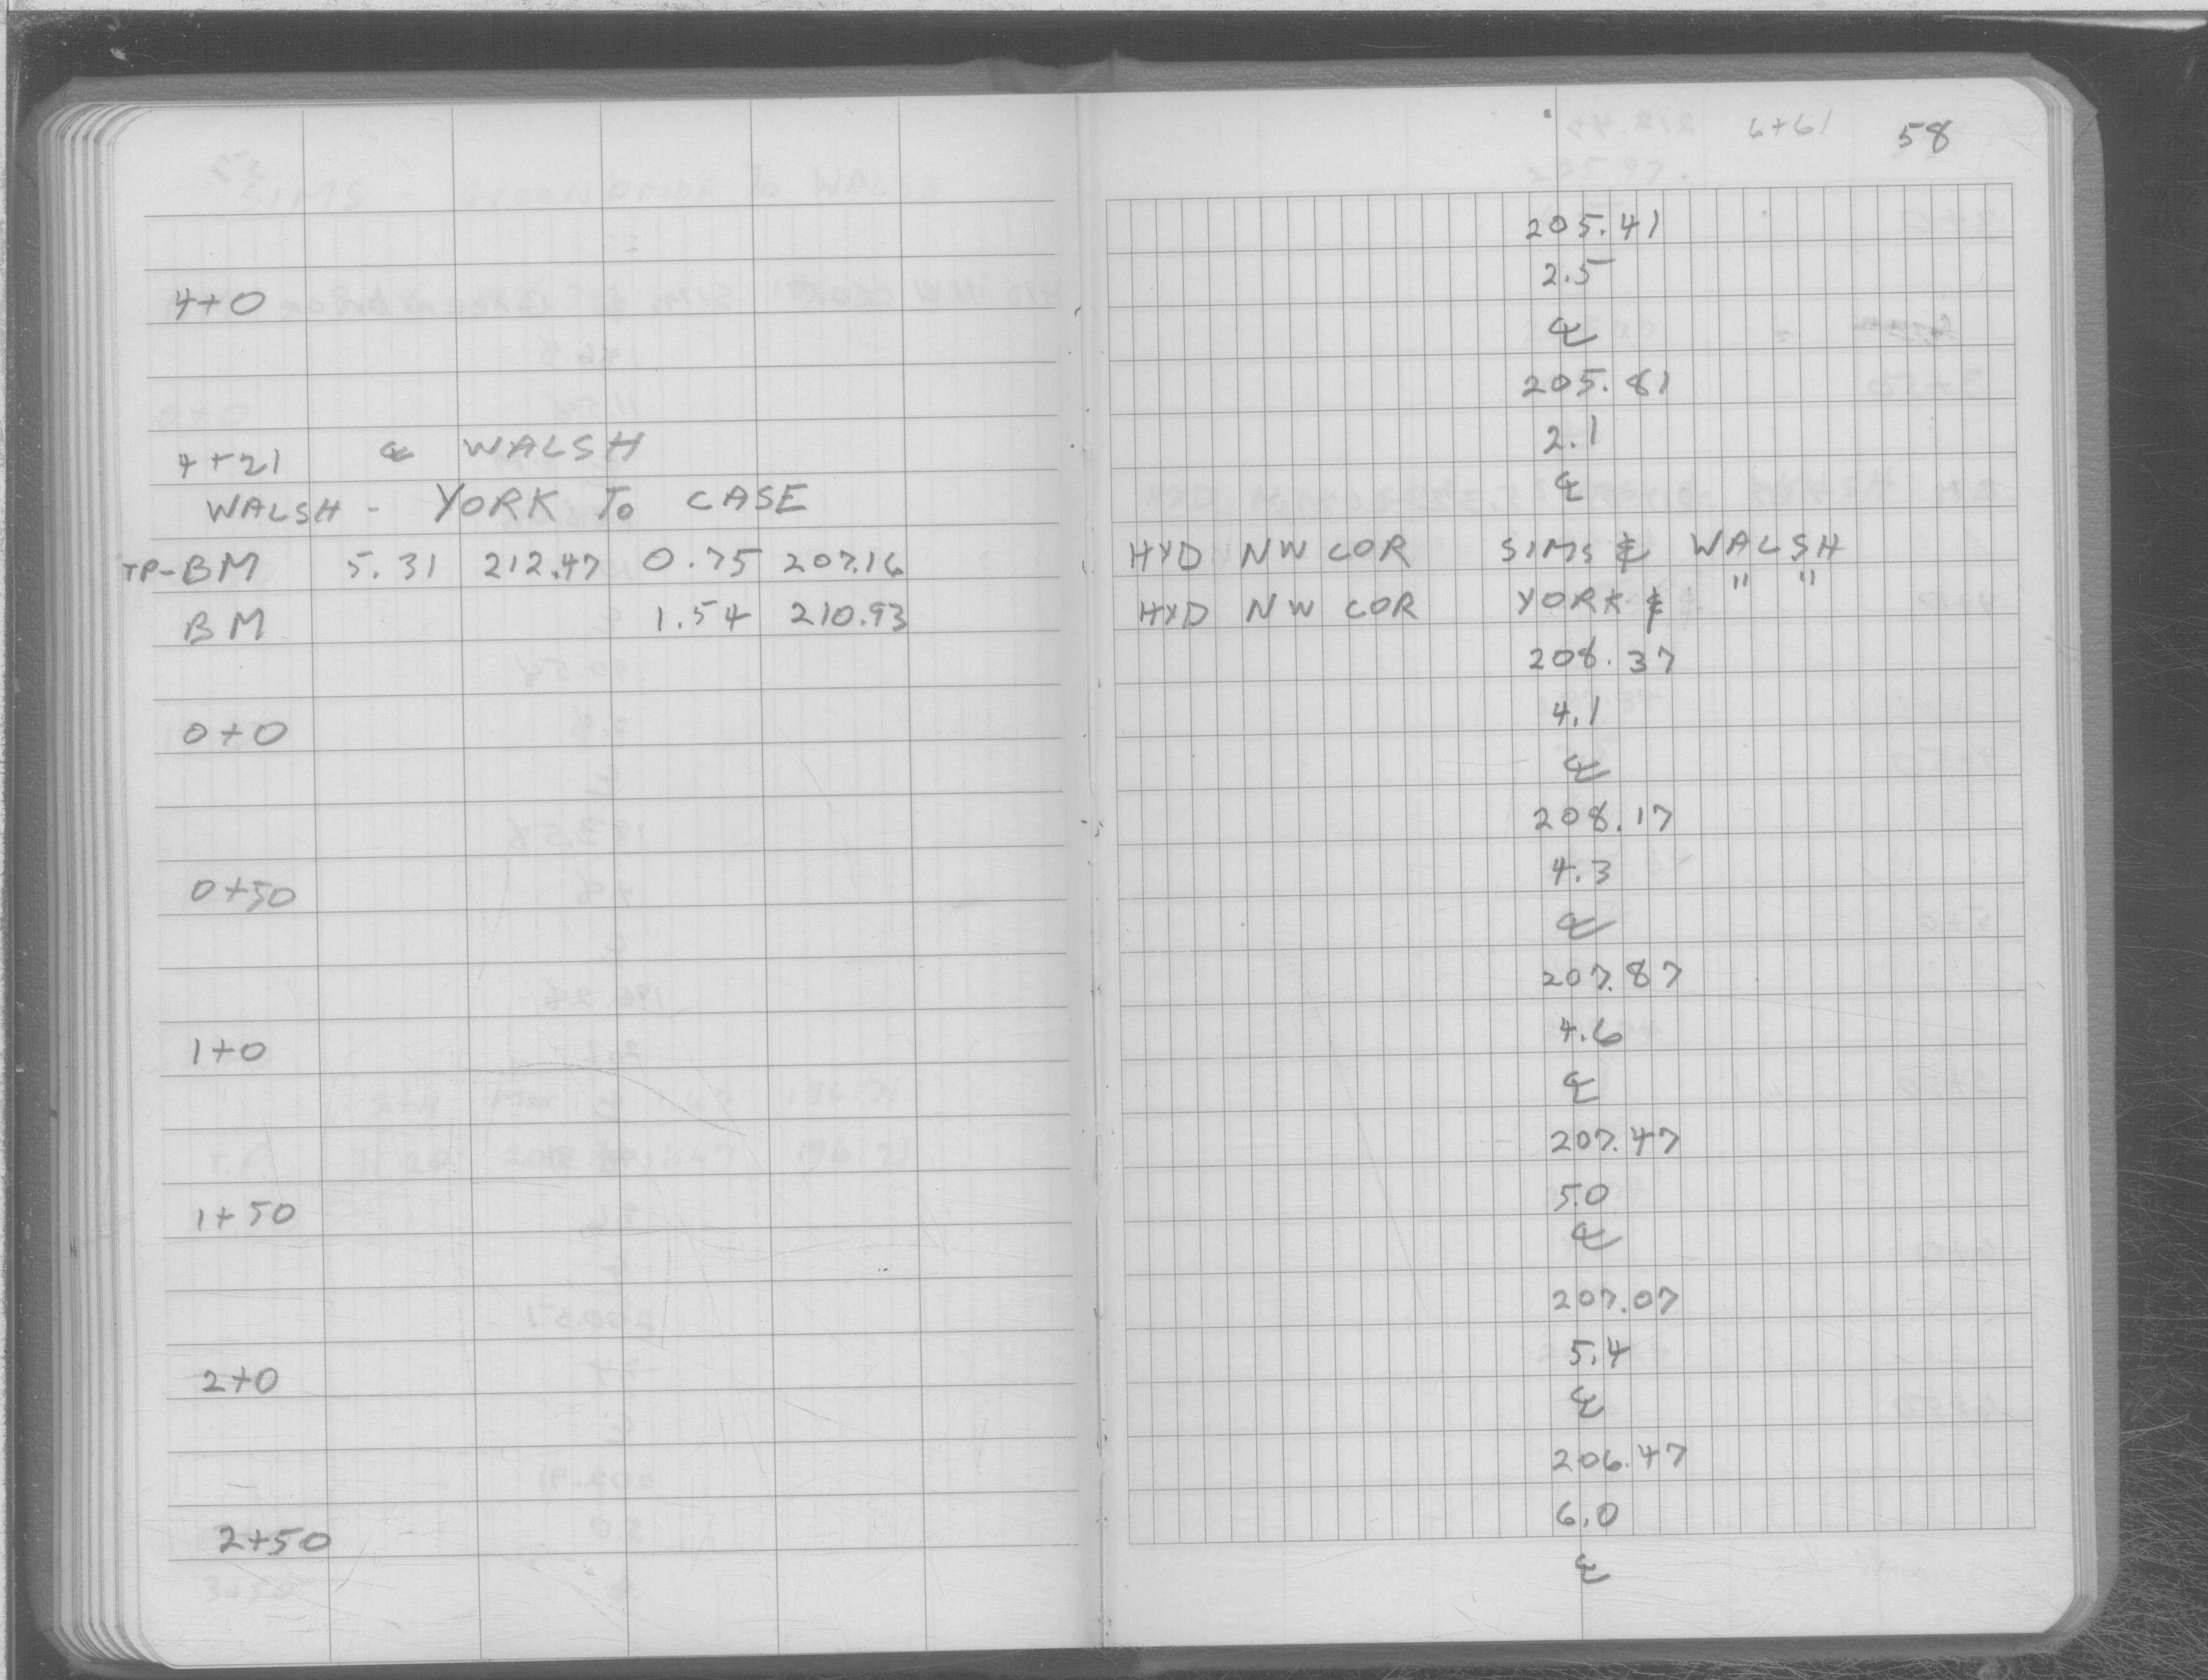 58
205.41
4+0 2.5
℄
205.81
4+21 ℄ WALSH 2.1
℄
WALSH - YORK TO CASE
TP-BM 5.31 212.47 0.75 207.16 HYD NW COR SIMS & WALSH
BM 1.54 210.93 HYD NW COR YORK & " "
208.37
0+0 4.1
℄
208.17
0+50 4.3
℄
207.87
1+0 4.6
℄
207.47
1+50 5.0
℄
207.07
2+0 5.4
℄
206.47
2+50 6.0
℄